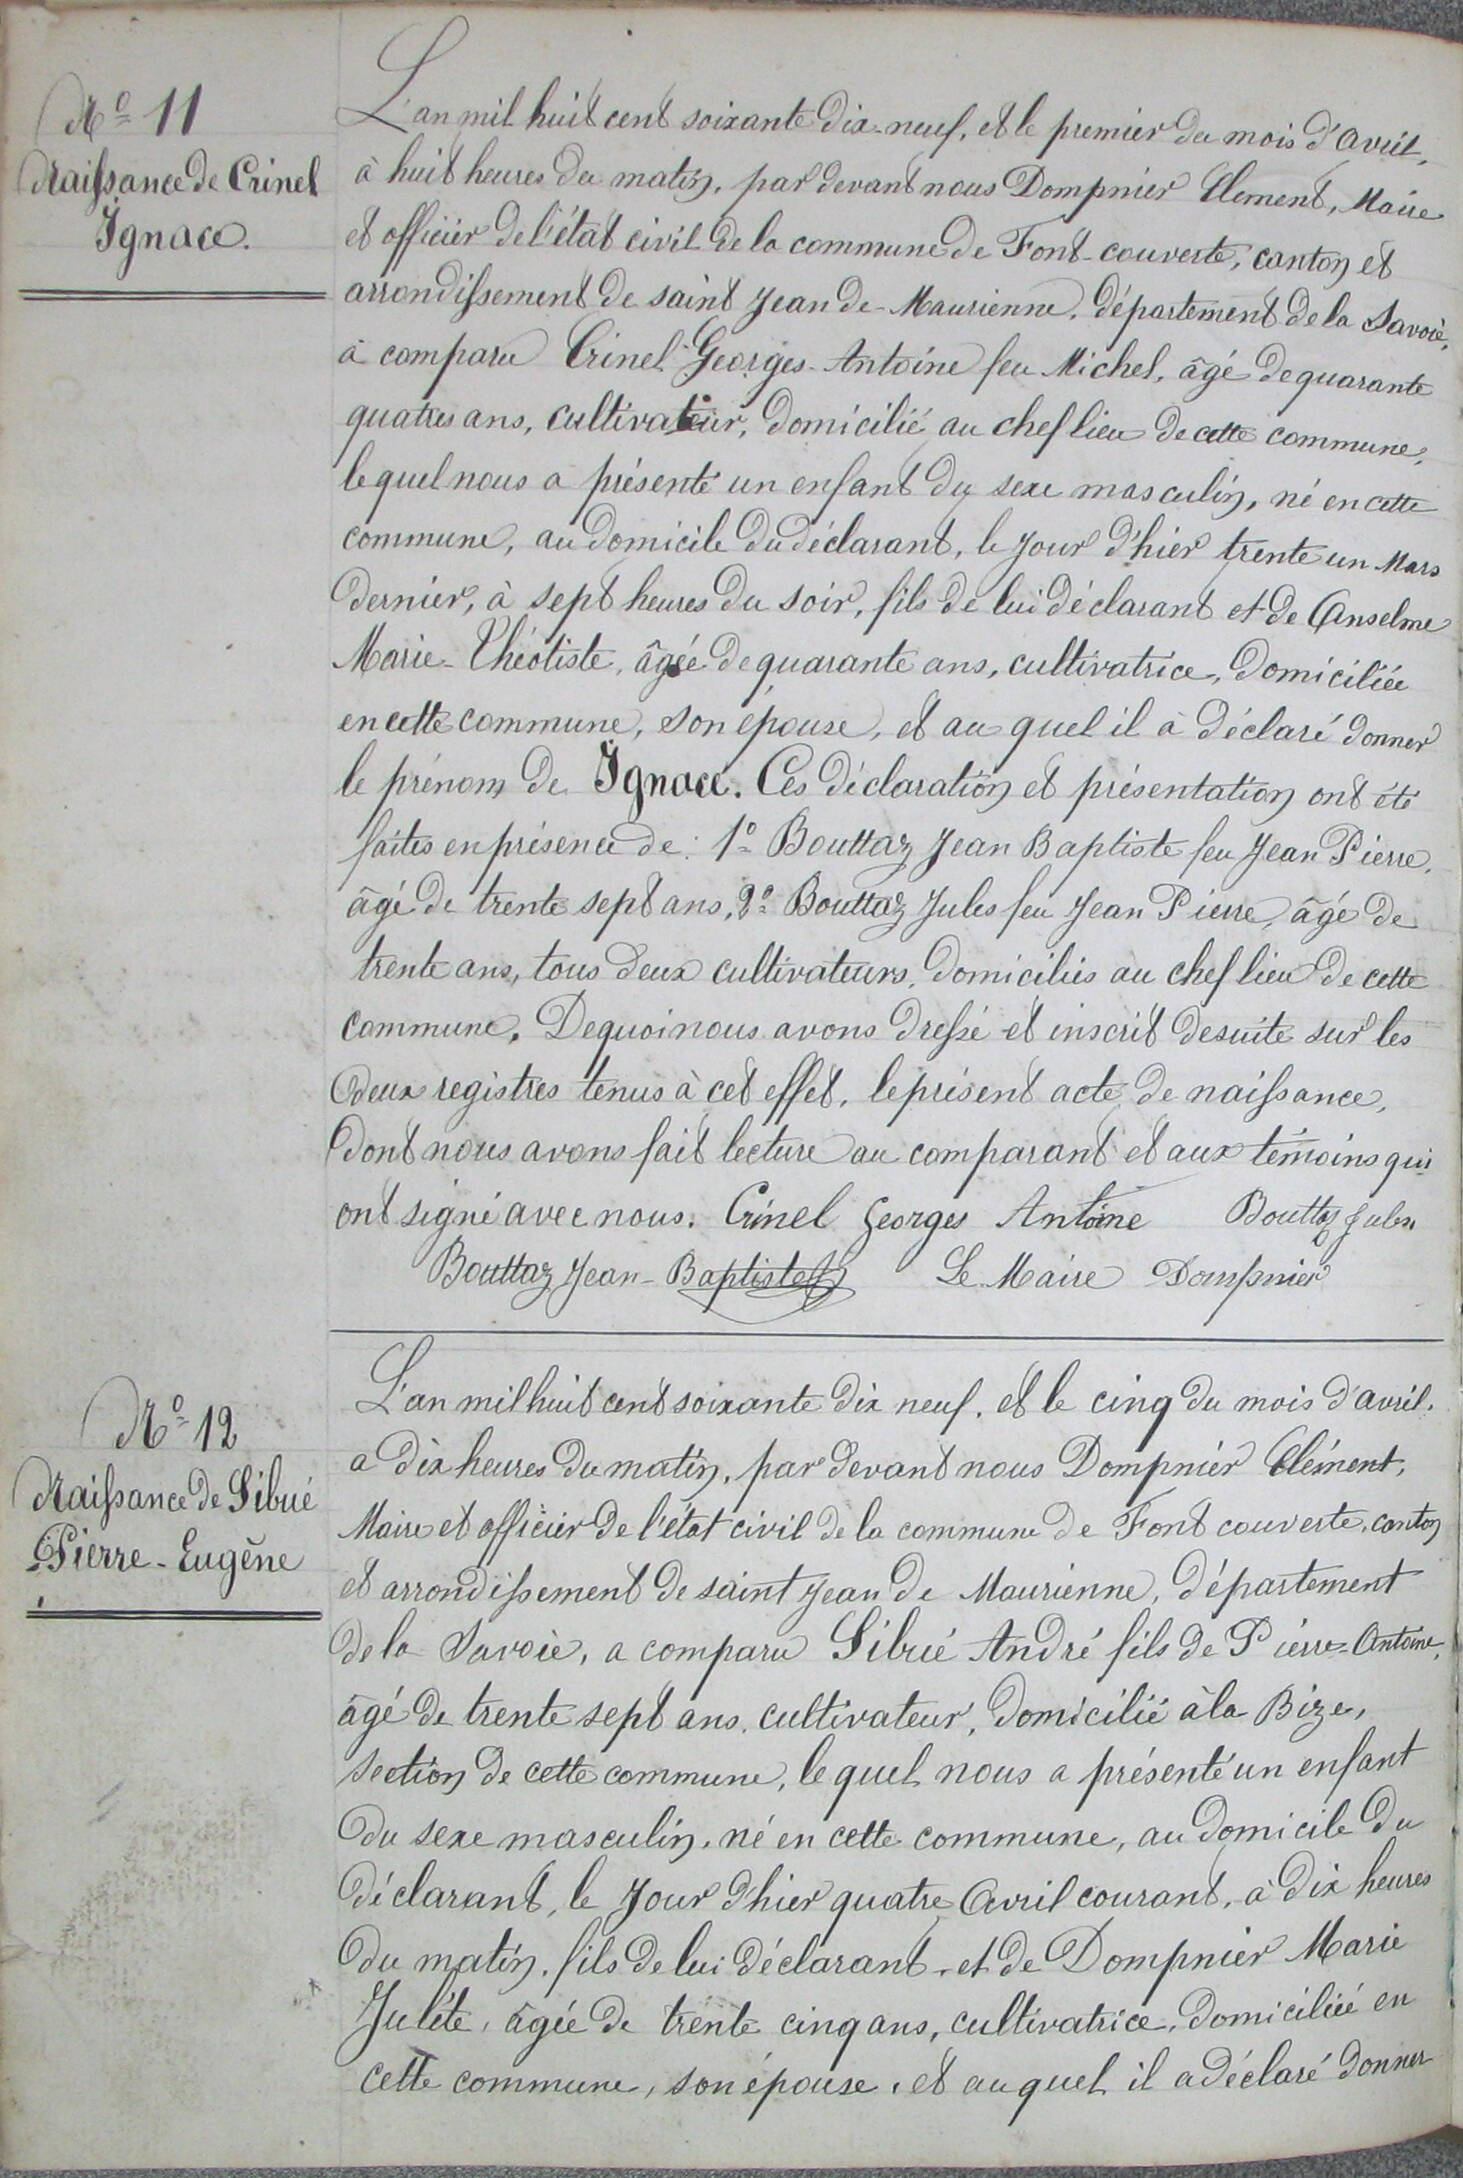 N° 11
Naissance de Crinel
Ignace.
L'an mil huit cent soixante dix-neuf, et le premier du mois d'avril,
à huit heures du matin, par devant nous Dompnier Clement, Maire
et officier de l'état civil de la commune de Font-couverte, canton et
arrondissement de saint Jean de-Maurienne, département de la Savoie,
à comparu Crinel Georges-Antoine feu Michel, âgé de quarante
quatres ans, cultivateur, domicilié au chef lieu de cette commune,
lequel nous a présenté un enfant du sexe masculin, né en cette
commune, au domicile du déclarant, le jour d'hier trente un Mars
dernier, à sept heures du soir, fils de lui déclarant et de Anselme
Marie-Théotiste, âgée de quarante ans, cultivatrice, domiciliée
en cette commune, son épouse, et au quel il à déclaré donner
le prénom de Ignace. Ces déclaration et présentation ont été
faites en présence de: 1° Bouttaz Jean Baptiste feu Jean Pierre,
âgé de trente sept ans, 2° Bouttaz Jules feu Jean Pierre, âgé de
trente ans, tous deux cultivateurs, domiciliés au chef lieu de cette
commune. De quoi nous avons dressé et inscrit desuite sur les
deux registres tenus à cet effet, le présent acte de naissance,
dont nous avons fait lecture au comparant et aux témoins qui
ont signé avec nous. Crinel Georges Antoine Bouttaz Jules
Bouttaz Jean-Baptiste Le Maire Dompnier
N° 12
Naissance de Sibué
Pierre-Eugène
L'an mil huit cent soixante dix neuf, et le cinq du mois d'avril,
a dix heures du matin, par devant nous Dompnier Clément,
Maire et officier de l'état civil de la commune de Font couverte, canton
et arrondissement de saint Jean de Maurienne, département
de la Savoie, a comparu Sibué André fils de Pierre-Antoine,
âgé de trente sept ans, cultivateur, domicilié à la Bize,
section de cette commune, le quel nous a présenté un enfant
du sexe masculin, né en cette commune, au domicile du
déclarant, le jour d'hier quatre Avril courant, à dix heures
du matin, fils de lui déclarant, et de Dompnier Marie
Juléte, âgée de trente cinq ans, cultivatrice, domiciliée en
cette commune, son épouse, et au quel il a déclaré donner